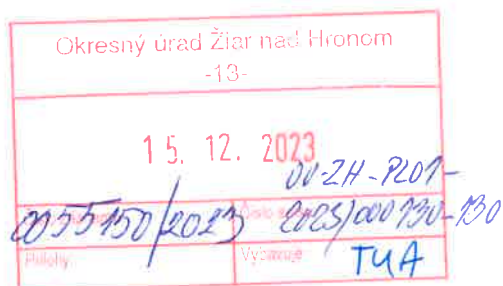 Okresný úrad Žiar nad Hronom
-13-
15. 12. 2023
OU-ZH-PLO1-
0055150/2023 2023/000130-130
Prílohy Vybavuje
TUA